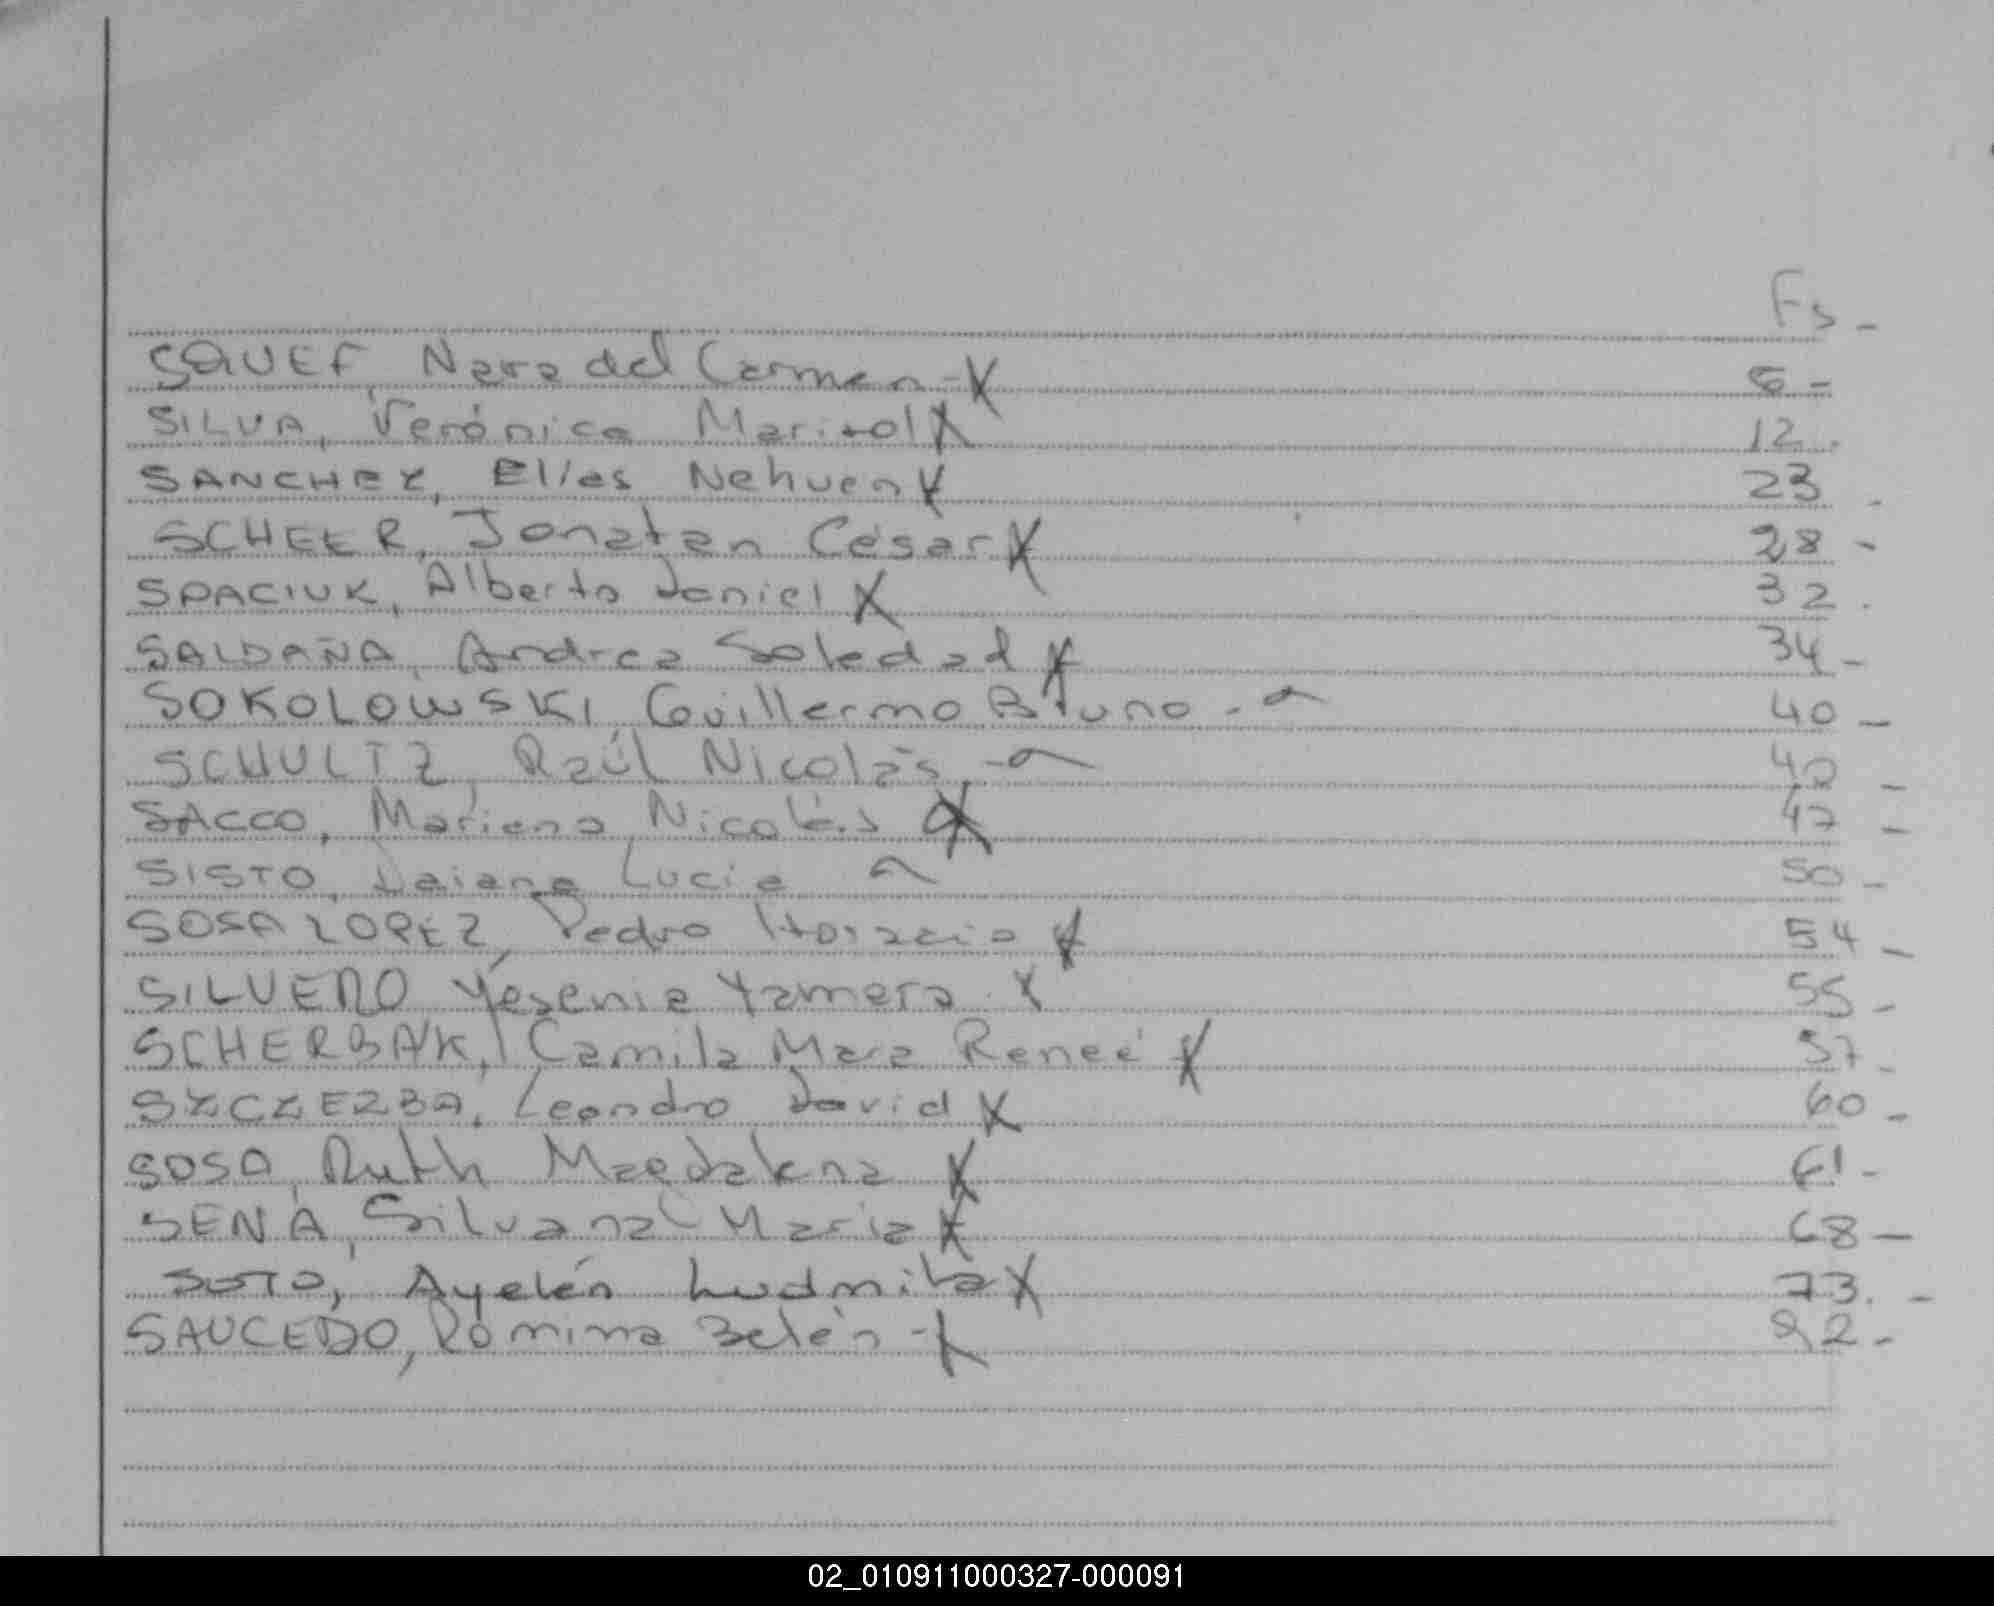 Fs -
SQUEF, Nara del Carmen - X 6 -
SILVA, Verónica Marisol X 12.
SANCHEZ, Elias Nehuen X 23 -
SCHEER, Jonatan César X 28 -
SPACIUK, Alberto Daniel X 32.
SALDAÑA, Andrea Soledad X 34 -
SOKOLOWSKI, Guillermo Bruno - 40 -
SCHULTZ, Raúl Nicolás - 42 -
SACCO, Mariano Nicolás X 47 -
SISTO, Daiana Lucia 50 -
SOSA LOPEZ, Pedro Horacio X 54 -
SILVERO Yésenia Yamara. X 55 -
SCHERBAK, Camila Mara Reneé X 57 -
SZCZERBA, Leandro David X 60 -
SOSA, Ruth Magdalena X 61 -
SENA, Silvana Maria X 68 -
SOTO, Ayelén Ludmila X 73. -
SAUCEDO, Romina Belén - X 92 -
02_010911000327-000091